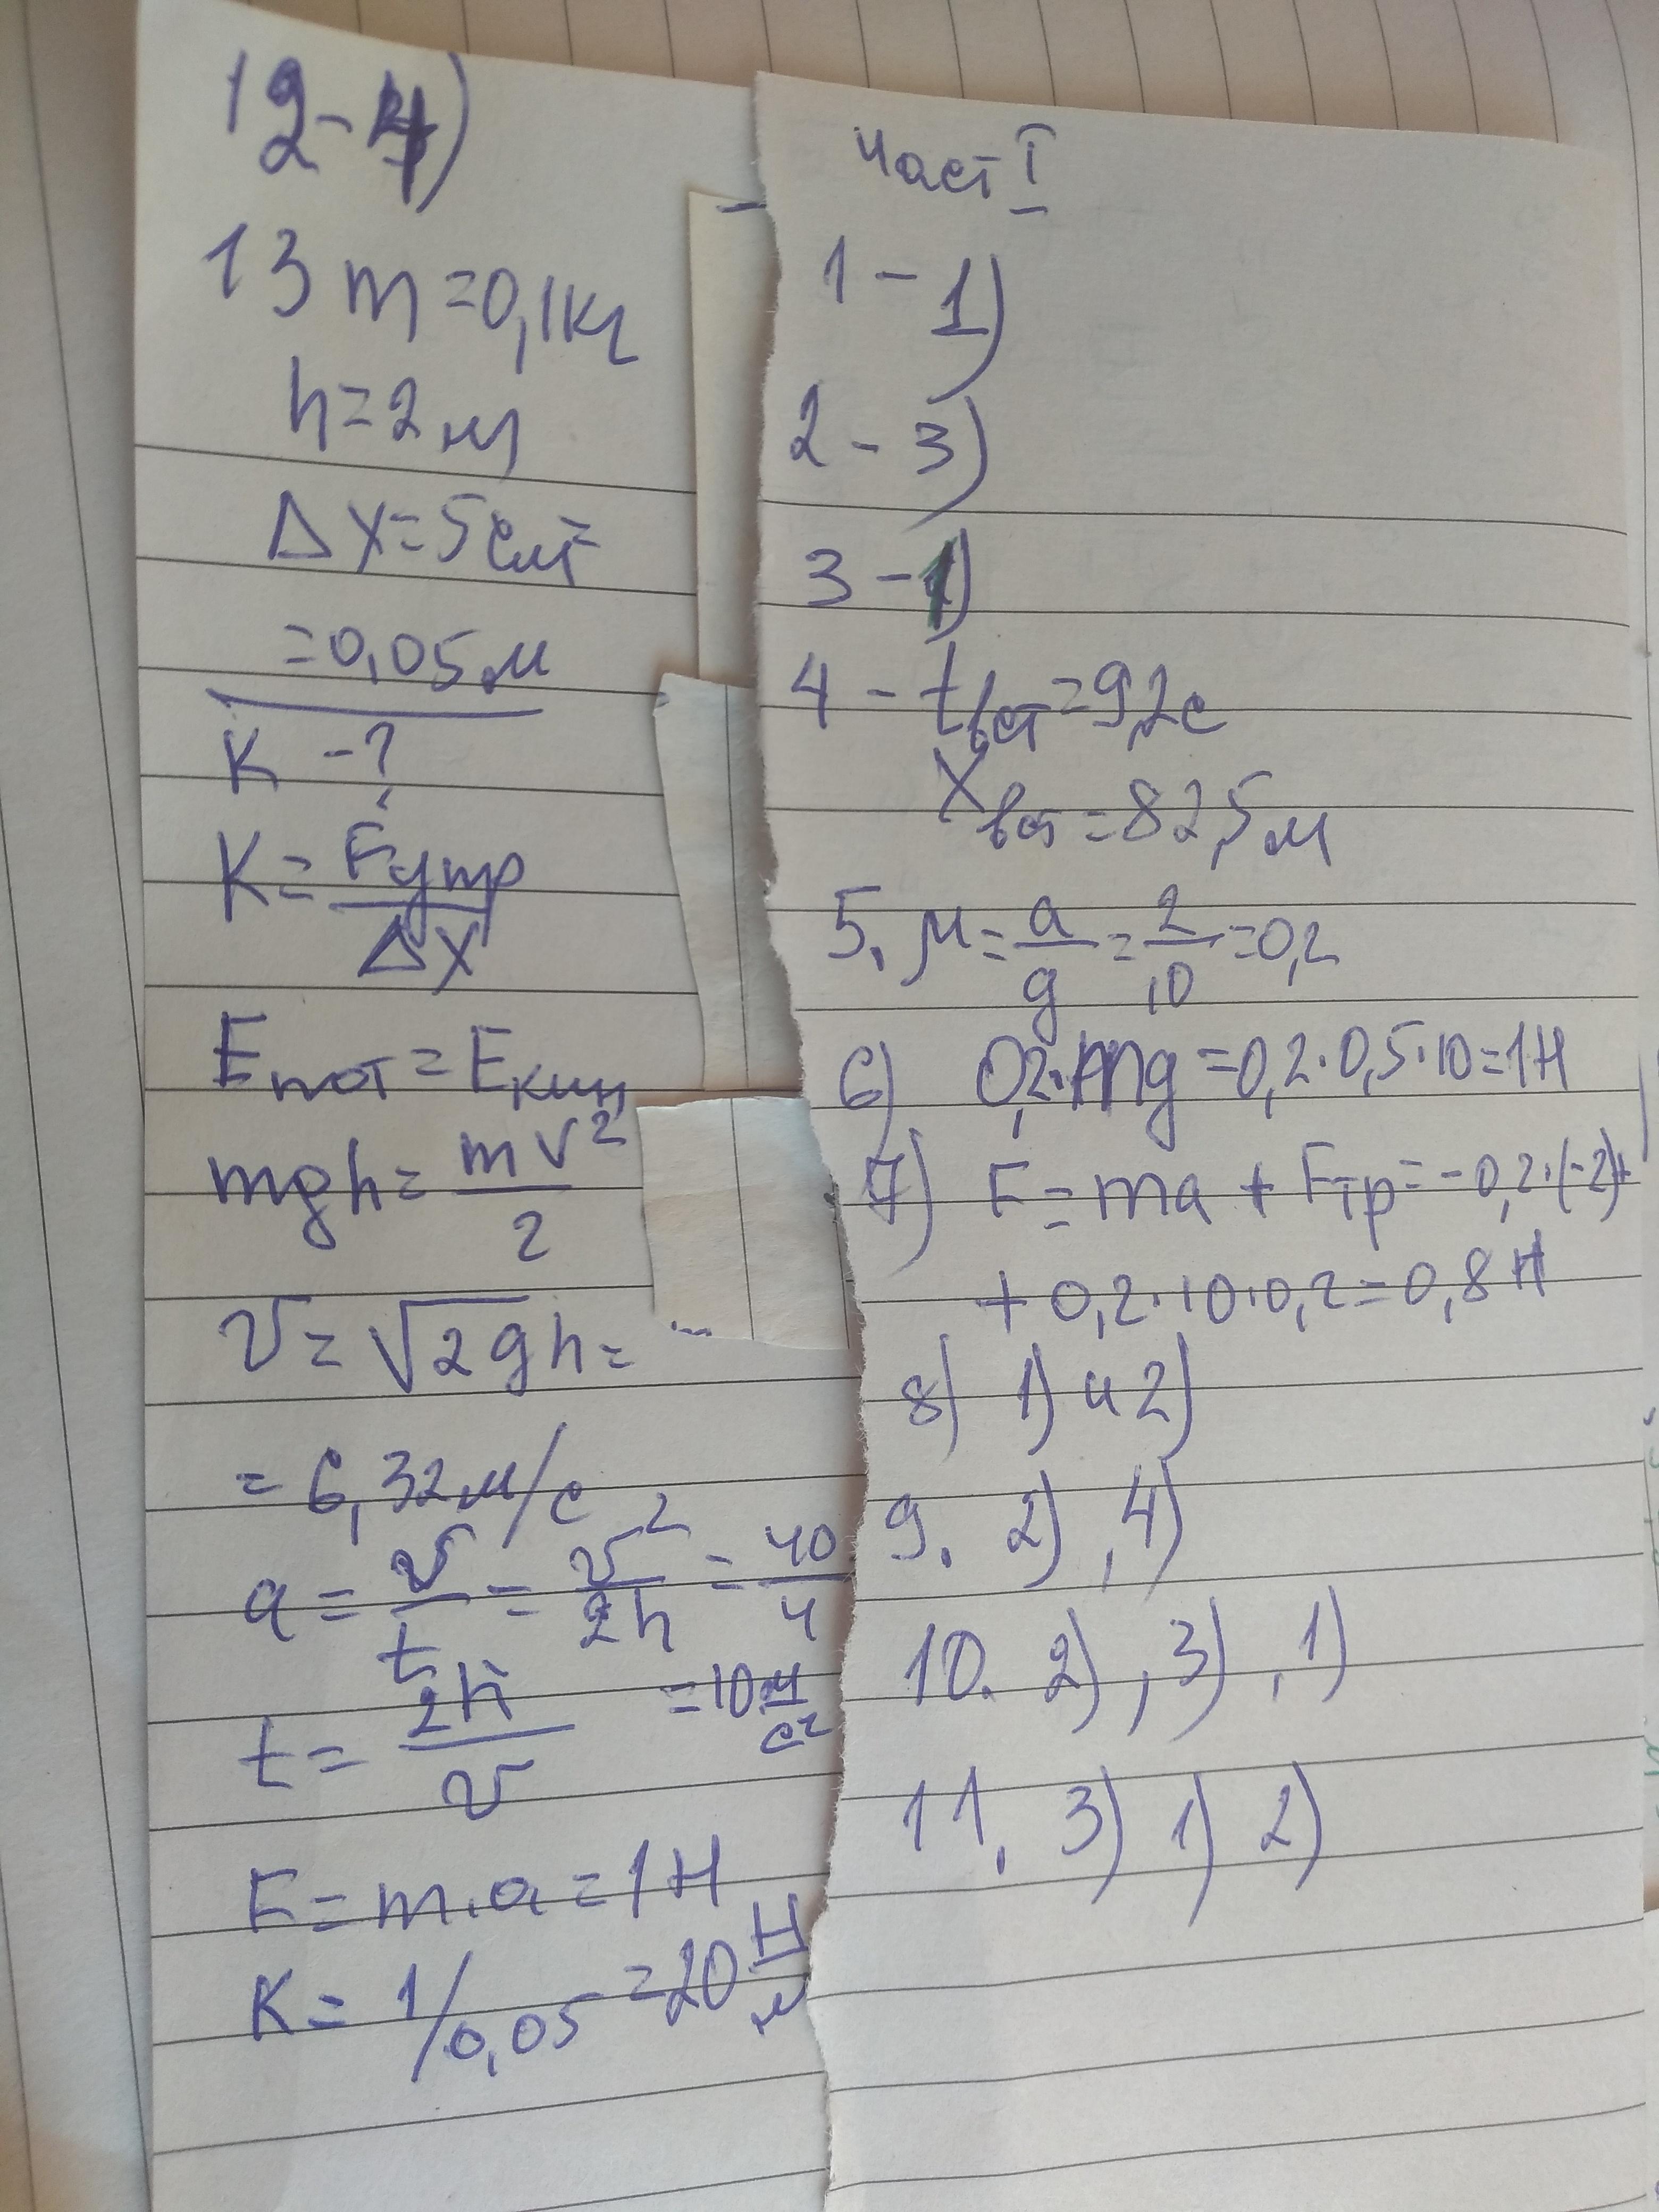 12-4)
13 m=0,1кг
h=2м
Δx=5см=
=0,05м
K-?
K=Fупр/Δx
Eпот=Eкин
mgh=mv²/2
v=√2gh=
=6,32м/с
a=v/t=v²/2h=40/4
=10м/с²
t=2h/v
F=m·a=1Н
K=1/0,05=20Н/м
Част I
1-1)
2-3)
3-1)
4-tвст=9,2с
Xвст=82,5м
5. μ=a/g=2/10=0,2
6) 0,2·mg=0,2·0,5·10=1Н
7) F=ma+Fтр=-0,2·(-2)+
+0,2·10·0,2=0,8Н
8) 1) и 2)
9. 2), 4)
10. 2), 3), 1)
11. 3) 1) 2)